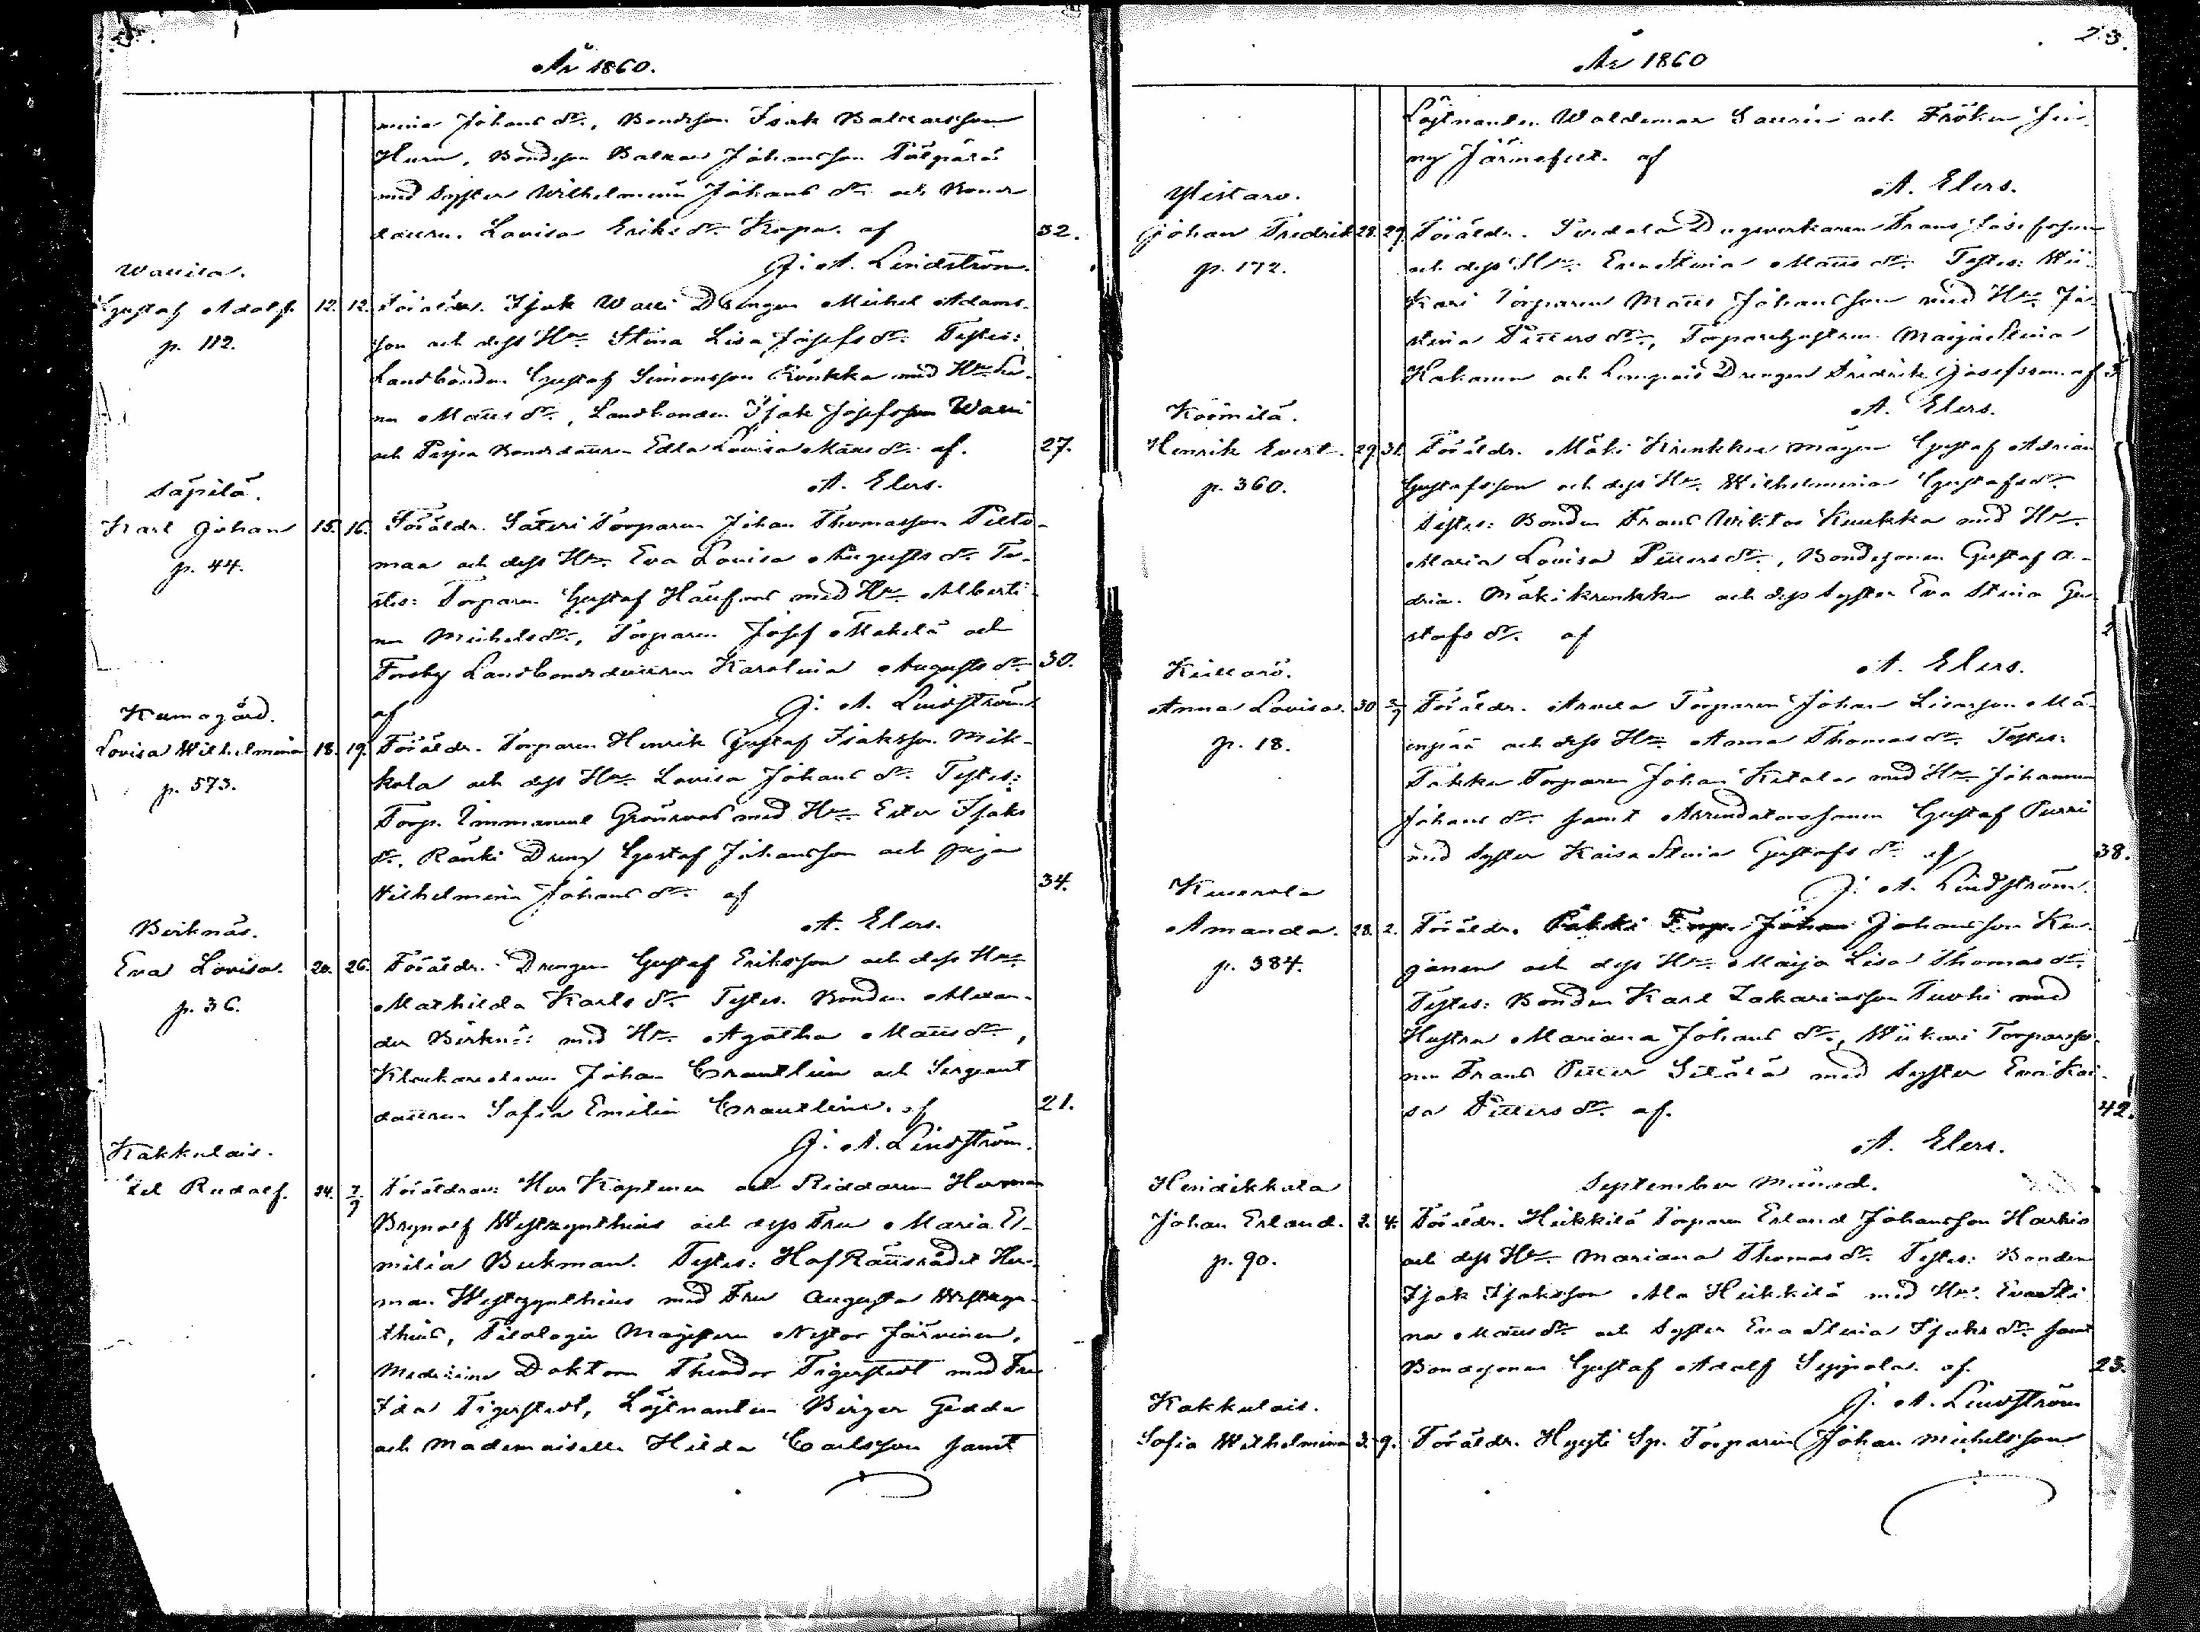 År 1860.
mina Johans dr., Bondeson Isak Baltzarsson
Hurn, Bondeson Baltzar Johansson
med Syster Wilhelmina Johans dr. och Bonde
dottern Lovisa Eriks dr. af 32.
J. A. Lindström.
Gustaf Adolf. 12. 12. Föräldr. Isak Drengen Michel Adams-
p. 112.
son och dess Hr. Stina Lisa Josefs dr. Testes:
Landbonden Gustaf Simonsson med Hr.
Matts dr., Landbonden Isak Josefsson
och Bondedottren Edla Lovisa Matts dr. af. 27.
A. Elers.
Säpilä.
Karl Johan 15. 16. Föräldr. Säteri Torparen Johan Thomasson Pelto-
p. 44.
maa och dess Hr. Eva Lovisa Augusts dr. Te-
stes: Torparen Gustaf med Hr. Alberti-
na Michels dr., Torparen Josef Mäkelä och
Forsby Landbondedottren Karolina Augusts dr. 30.
af J. A. Lindström
Kumogård.
Lovisa Wilhelmina 18. 19. Föräldr. Torparen Henrik Gustaf Isaksson Mik-
p. 573.
kola och dess Hr. Lovisa Johans dr. Testes:
Torp. Immanuel Grönroos med Hr. Ester Isaks
dr. Ränki Dreng Gustaf Johansson och piga
Vilhelmina Johans dr. af 34.
A. Elers.
Birknäs.
Eva Lovisa. 20. 26. Föräldr. Drengen Gustaf Eriksson och dess Hr.
p. 36.
Mathilda Karls dr. Testes. Bonden Alexan-
der Birknäs med Hr. Agatha Matts dr.,
Klockaren Johan Crantlin och Sergeant
dottren Sofia Emilia Crantlin. af 21.
J. A. Lindström.
Kakkulais.
Rudolf. 24. 7/9 Föräldrar: Herr Kaptenen och Riddaren Herman
Brynolf Westzynthius och dess Fru Maria E-
milia Bukman. Testes: HofRättsrådet Her-
man Westzynthius med Fru Augusta Westzyn-
thius, Filologie Magistern Nestor Järvinen,
Medicine Doktorn Theodor Tigerstedt med Fru
Ida Tigerstedt, Löjtnanten Birger Gedda
och Mademoiselle Hilda Carlsson samt
23.
År 1860
Löjtnanten Waldemar och Fröken Jen-
ny Järnefelt. af
A. Elers.
Ylistaro.
Johan Fredrik 28. 29. Föräldr. Frans Josefsson
p. 172.
och dess Hr. Eva Stina Matts dr. Testes: Wii-
kari Torparen Matts Johansson med Hr. Ju-
stina Petters dr., Torparehustrun Maija Stina
och Drengen Fredrik Josefsson af
A. Elers.
Köömilä.
Henrik Evert. 29. 31. Föräldr. Mäki Krenkku mågen Gustaf Adrian
p. 360.
Gustafsson och dess Hr. Wilhelmina Gustafs dr.
Testes: Bonden Frans Wiktor Kuukka med Hr.
Maria Lovisa Petters dr., Bondesonen Gustaf A-
drian Mäkikrenkku och dess Syster Eva Stina Gu-
stafs dr. af
A. Elers.
Anna Lovisa. 30 2/9 Föräldr. Arvela Torparen Johan Mä-
p. 18.
enpää och dess Hr. Anna Thomas dr. Testes:
Torparen Johan Ketala med Hr. Johanna
Johans dr. samt Arrendatorsonen Gustaf
med Syster Kaisa Stina Gustafs dr. af 38.
J. A. Lindström.
Kuurola
Amanda. 28. 2. Föräldr. Torp. Johan Johansson
p. 384.
och dess Hr. Maija Lisa Thomas dr.
Testes: Bonden Karl Zakariasson Tuohi med
Hustru Mariana Johans dr., Wiikari Torpareso-
nen Frans Petter med Syster Eva Kai-
sa Petters dr. af. 42.
A. Elers.
September Månad.
Heidikkala
Johan Erland. 2. 4. Föräldr. Heikkilä Torparen Erland Johansson Harkio
p. 90.
och dess Hr. Mariana Thomas dr. Testes: Bonden
Isak Isaksson Ala Heikkilä med Hr. Eva Sti-
na Matts dr. och Syster Eva Stina Isaks dr. samt
Bondesonen Gustaf Adolf Seppälä. af. 23.
J. A. Lindström
Kakkulais.
Sofia Wilhelmina 3. 9. Föräldr. Hyyti Sp. Torparen Johan Michelsson